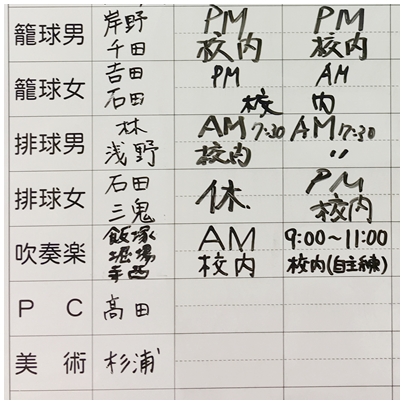 籠球男 岸野 PM PM
千田 校内 校内
籠球女 吉田 PM AM
石田 校内
排球男 林 AM 7:30 AM 7:30
浅野 校内 〃
排球女 石田 休. PM
三鬼 校内
吹奏楽 飯塚 AM 9:00~11:00
堀場 校内 校内(自主練)
寺西
PC 髙田
美術 杉浦